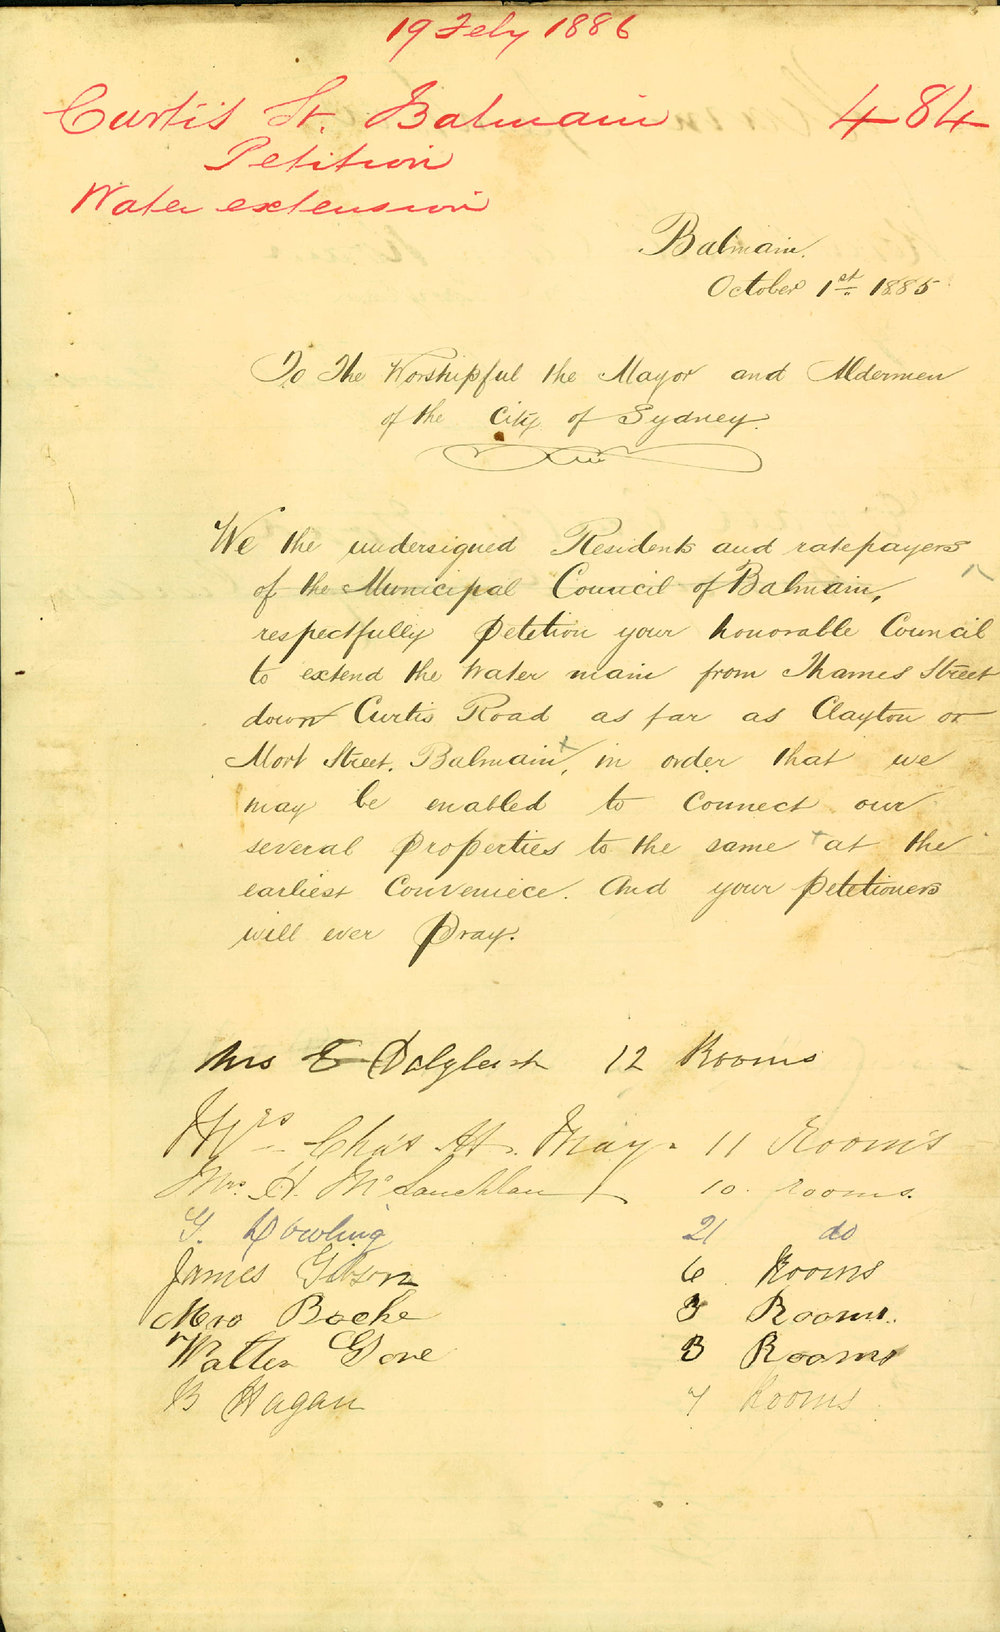 19 Feby 1886
Curtis St. Balmain 484
Petition
Water extension
Balmain.
October 1st 1885
To The Worshipful the Mayor and Aldermen
of the City of Sydney.
We the undersigned Residents and ratepayers
of the Municipal Council of Balmain,
respectfully petition your honorable Council
to extend the Water main from Thames Street
down Curtis Road as far as Clayton or
Mort Street. Balmain, in order that we
may be enabled to connect our
several properties to the same at the
earliest Conveniece. And your petitioners
will ever pray.
Mrs E Dalgleish 12 Rooms
Mrs Chas H. May. 11 Rooms
Mrs. H. McLauchlan 10. rooms.
G. Dowling 21 do
James Gibson 6 Rooms
Mrs Boche 3 Rooms.
Walter Gore 3 Rooms
B Hagan 7 Rooms